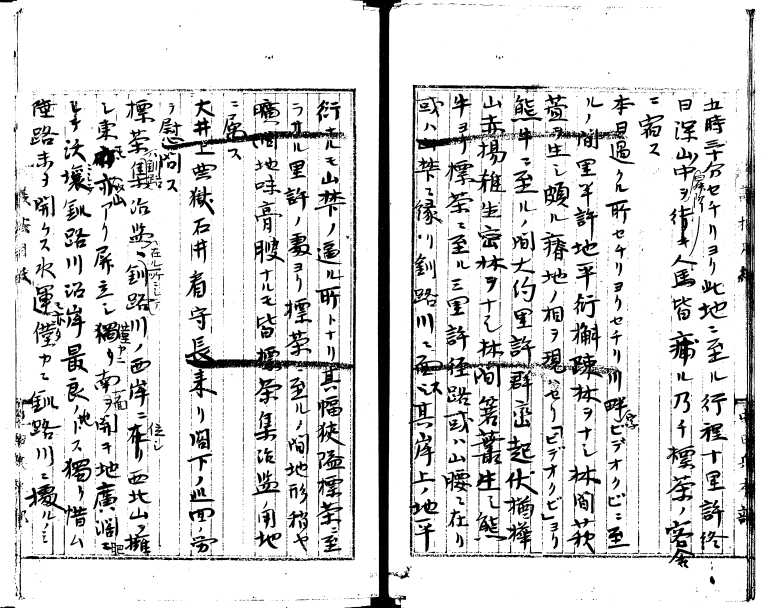 五時三十分セチリヨリ此地ニ至ル行程十里許終
日深山中ヲ行キ人馬皆痡ル乃チ標茶ノ客舎
ニ宿ス
本日過クル所セチリヨリセチリ川畔ビデオクビニ至
ルノ間里半許地平衍槲疎林ヲナシ林間萩
萱ヲ生シ頗ル瘠地ノ相ヲ現セリ「ビデオクビ」ヨリ
熊牛ニ至ルノ間大約里許群巒起伏楢樺
山赤揚雑生密林ヲナシ林間箬叢生シ熊
牛ヨリ標茶ニ至ル三里許径路或ハ山腰ニ在リ
或ハ山麓ニ縁リ釧路川ニ面ス其岸上ノ地平
衍ナルモ山麓ノ逼ル所トナリ其幅狭隘標茶ニ至
ラサル里許ノ処ヨリ標茶ニ至ルノ間地形稍ヤ
曠闊地味膏腴ナルモ皆標茶集治監ノ用地
ニ属ス
大井上典獄石井看守長来リ閣下ノ巡回ノ労
ヲ慰問ス
標茶集治監ハ釧路川ノ西岸ニ在リ西北山ヲ擁
シ東亦山アリ屏立シ独リ南ヲ開キ地広濶ニ
シテ沃壌釧路川沿岸最良ノ地トス独リ惜ム
陸路未タ開ケス水運僅カニ釧路川ニ拠ルノミ